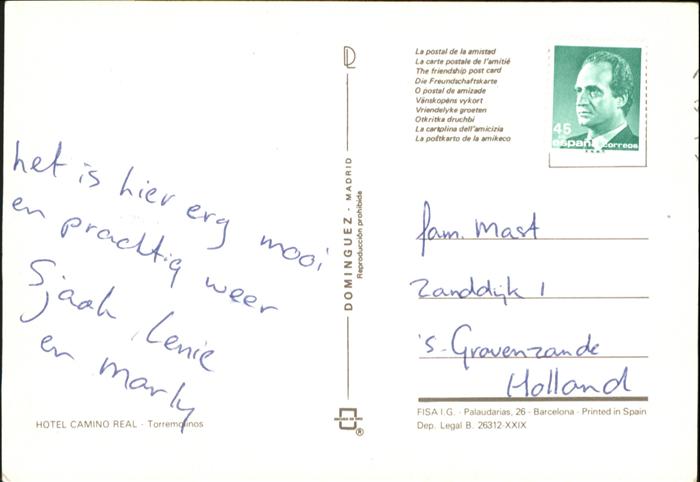 het is hier erg mooi
en prachtig weer
Sjaak, Lenie
en Marly
HOTEL CAMINO REAL - Torremolinos
DOMINGUEZ - MADRID
Reproducción prohibida
La postal de la amistad
La carte postale de l'amitié
The friendship post card
Die Freundschaftskarte
O postal de amizade
Vänskopens vykort
Vriendelyke groeten
Otkritka druchbi
La cartolina dell'amicizia
La poŝtkarto de la amikeco
45
españa correos
fam. Mast
Zanddijk 1
's-Gravenzande
Holland
FISA I.G. - Palaudarias, 26 - Barcelona - Printed in Spain
Dep. Legal B. 26312-XXIX